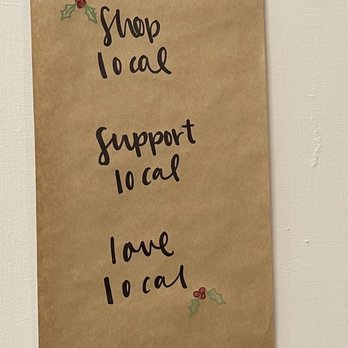 Shop
local
Support
local
love
local